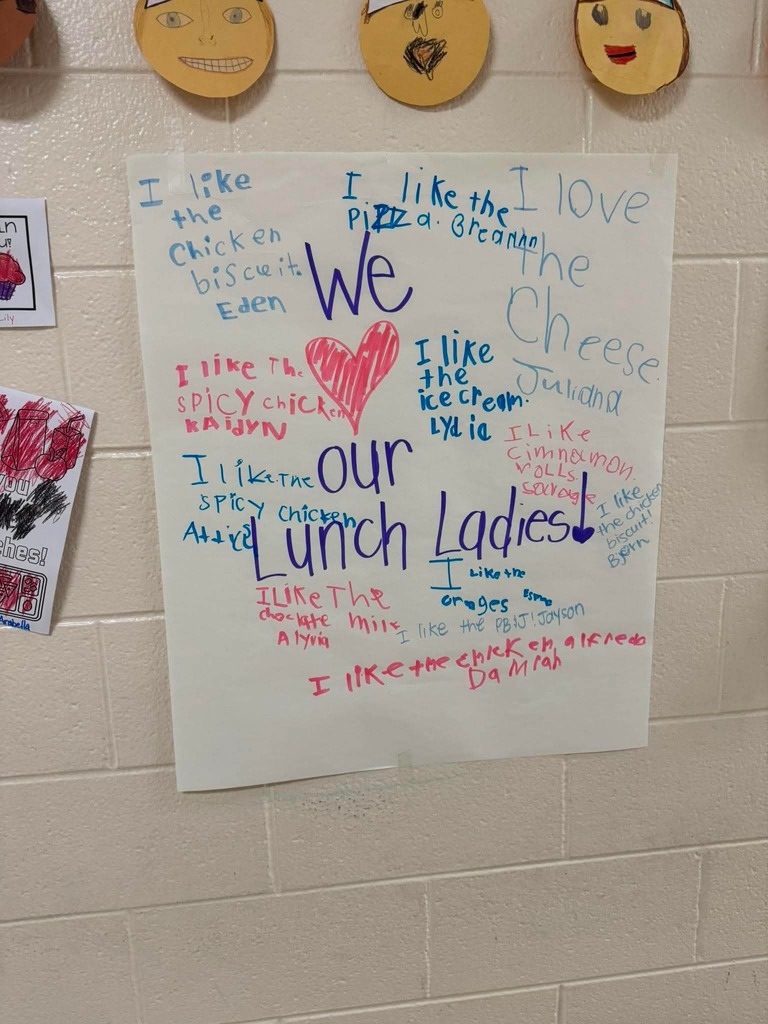 I like
the
Chicken
biscuit.
Eden
I like the
Pizza. Breann
I love
the
Cheese.
Juliana
We
our
Lunch Ladies!
I like The
SPICY chicken
KAidYN
I like
the
ice cream.
Lydia
I Like
cimnamon
rolls
I like The
SPICY chicken
I like
the chicken
biscuit!
Bjorn
I Like the
oranges
I Like The
choclate milk
Alyvia
I like the PB&J! Jayson
I like the chicken alfredo
Damiah
Lily
you
ches!
Arabella